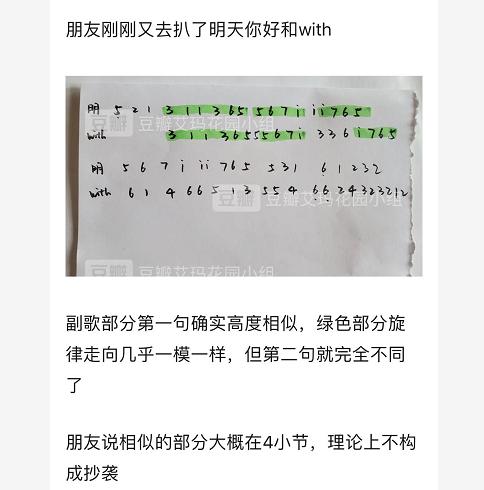 朋友刚刚又去扒了明天你好和with
明 5 2 1 3 1 1 3 6 5 5 6 7 i i i 7 6 5
with 3 1 1 3 6 5 5 5 6 7 i 3 3 6 i 7 6 5
明 5 6 7 i i i 7 6 5 5 3 1 6 1 2 3 2
with 6 1 4 6 6 5 1 3 5 5 4 6 6 2 4 3 2 3 2 1 2
豆瓣 豆瓣艾玛花园小组
豆瓣 豆瓣艾玛花园小组
豆瓣 豆瓣艾玛花园小组
副歌部分第一句确实高度相似，绿色部分旋
律走向几乎一模一样，但第二句就完全不同
了
朋友说相似的部分大概在4小节，理论上不构
成抄袭